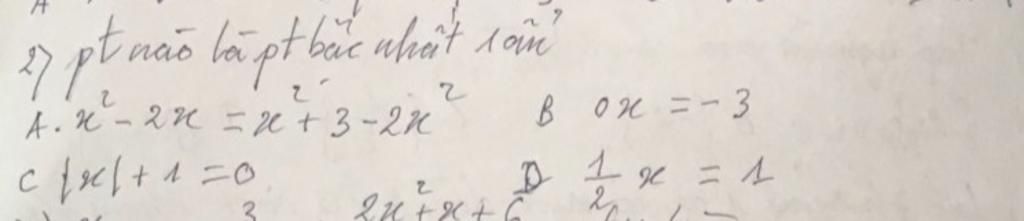 2) pt nào là pt bậc nhất 1 ẩn
A. x² - 2x = x² + 3 - 2x² B 0x = -3
C |x| + 1 = 0 D 1/2 x = 1
2x² + x + 6